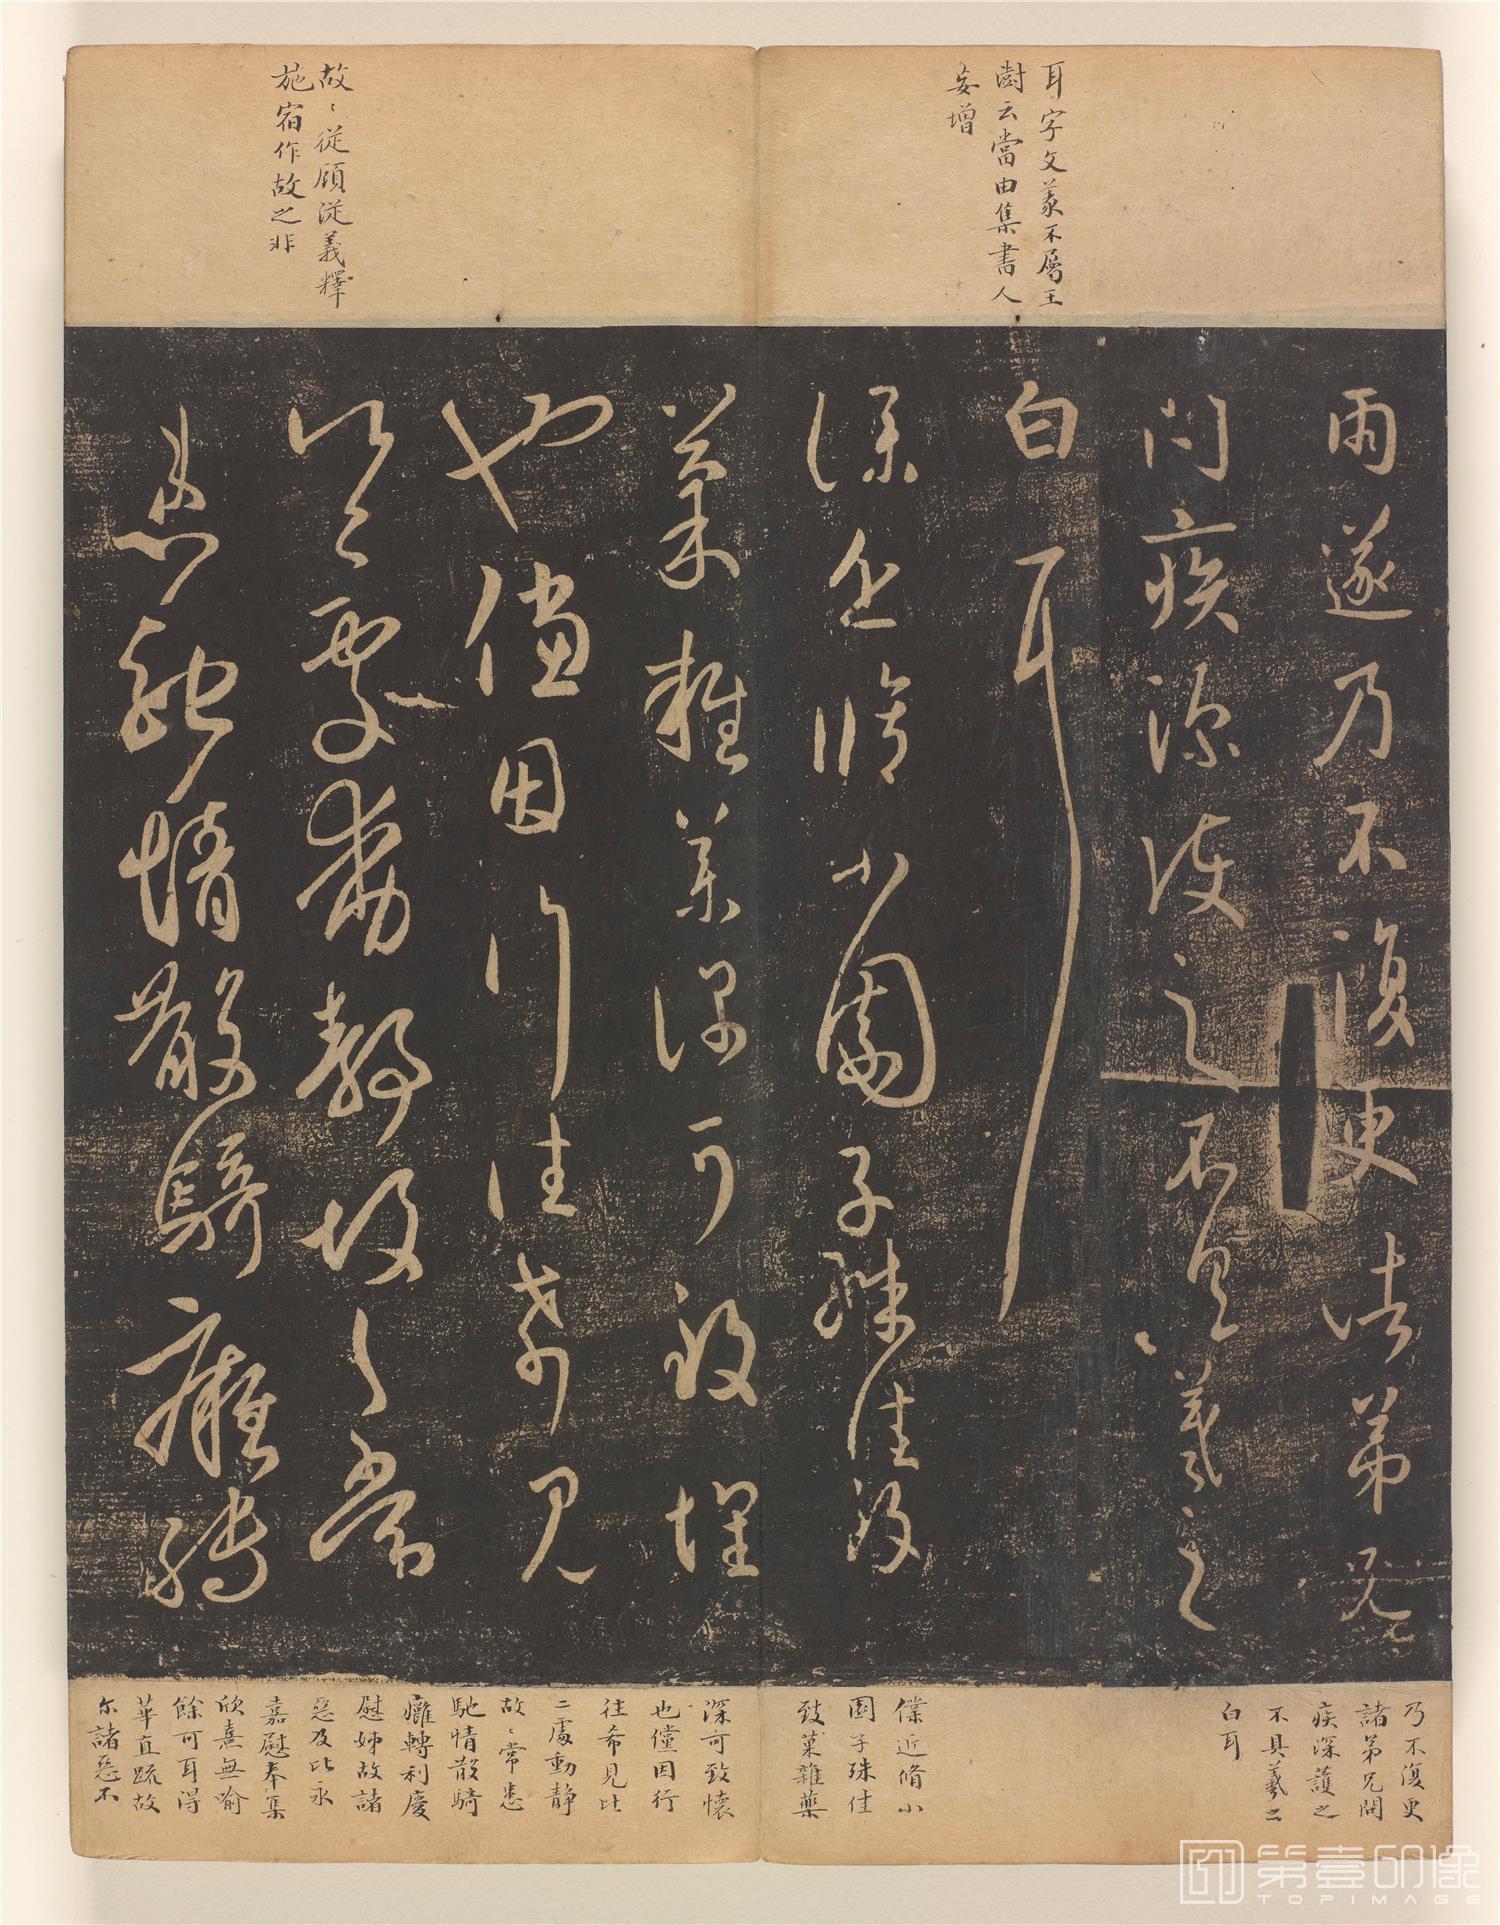 耳字文義不屬王
澍云當由集書人
妄增
故〻從顧從義釋
施宿作故之非
雨遂乃不復更諸弟兄
問疾深護之不具羲之
白耳
僕近脩小園子殊佳致
菓雜藥深可致懷
也儻因行往希見
比二處動靜故〻常
患馳情散騎癰轉
乃不復更
諸弟兄問
疾深護之
不具羲之
白耳
僕近脩小
園子殊佳
致菓雜藥
深可致懷
也儻因行
往希見比
二處動靜
故〻常患
馳情散騎
癰轉利慶
慰姊故諸
惡及比永
嘉慰奉集
欣熹無喻
餘可耳得
華直疏故
尓諸惡不
第壹印像
TOPIMAGE